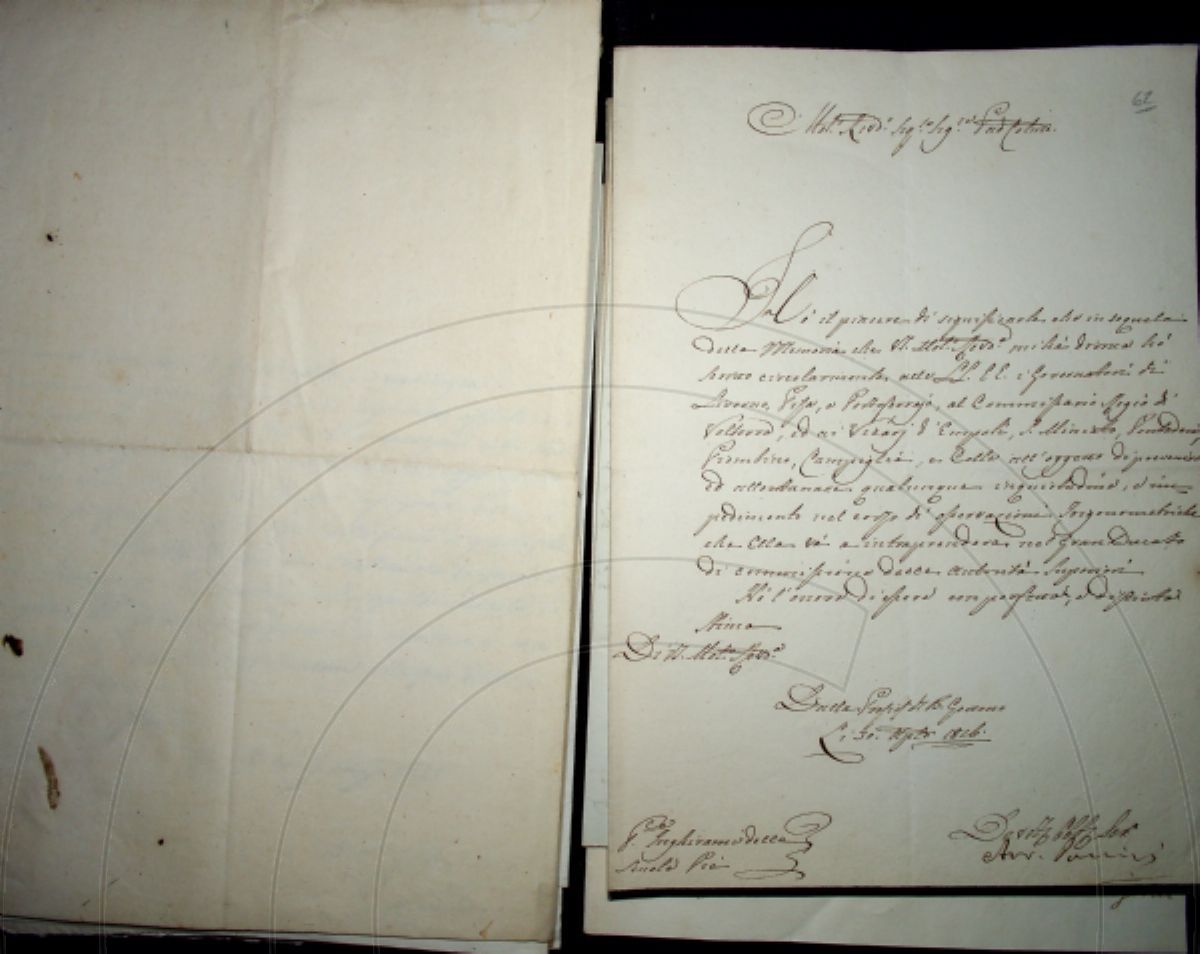 62
Mol.o Rev.do Sig.re Sig.re Pad.
Hò il piacere di significarle che in seguela
della Memoria che V. Mol.o Rev.da mi hà diretta hò
scritto circolarmente alle LL. EE. i Governatori di
Livorno, Pisa, e Portoferrajo, al Commissario Regio di
Volterra, ed ai Vicarj d'Empoli, S. Miniato,
Piombino, Campiglia, e Colle nell'oggetto di prevenire
ed allontanare qualunque inquietudine, e im-
pedimento nel corso di osservazioni Trigonometriche
che Ella và a intraprendere nel Gran Ducato
di commissione delle autorità Superiori
Hò l'onore di essere con perfetta, e distinta
Stima
Di V. Mol.o Rev.da
Dalla Presid. del B. Governo
Li 30. 1816.
P. Inghirami delle
Scuole Pie
Dev.
Avv.